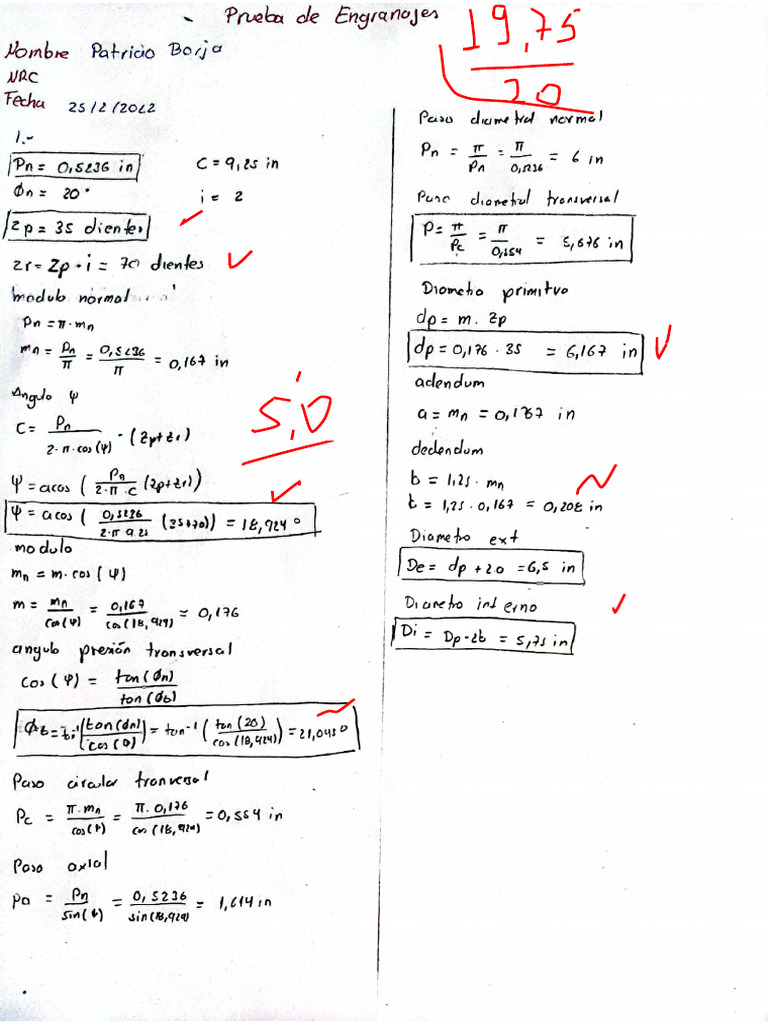 Prueba de Engranajes
19,75
20
Nombre Patricio Borja
NRC
Fecha 25/2/2022
1.-
Pn = 0,5236 in
C = 9,25 in
Φn = 20°
i = 2
Zp = 35 dientes
Zr = Zp · i = 70 dientes
modulo normal
Pn = π · mn
mn = Pn/π = 0,5236/π = 0,167 in
Angulo Ψ
C = Pn/(2·π·cos(Ψ)) · (Zp+Zr)
5,0
Ψ = acos ( Pn/(2·π·C) (Zp+Zr) )
Ψ = acos ( 0,5236/(2·π 9.25) (35+70) ) = 18,924°
modulo
mn = m · cos (Ψ)
m = mn/cos(Ψ) = 0,167/cos(18,924) = 0,176
angulo presión transversal
cos (Ψ) = tan(Φn)/tan(Φt)
= tan⁻¹ ( tan(20)/cos(18,924) ) = 21,043°
Paso circular tranversal
Pc = π·mn/cos(Ψ) = π·0,176/cos(18,924) = 0,554 in
Paso axial
Pa = Pn/sin(Ψ) = 0,5236/sin(18,924) = 1,614 in
Paso diametral normal
Pn = π/Pn = π/0,5236 = 6 in
Paso diametral transversal
P = π/Pc = π/0,554 = 5,676 in
Diametro primitivo
dp = m · Zp
dp = 0,176 · 35 = 6,167 in
adendum
a = mn = 0,167 in
dedendum
b = 1,25 · mn
b = 1,25 · 0,167 = 0,208 in
Diametro ext
De = dp + 2a = 6,5 in
Diametro interno
Di = Dp - 2b = 5,75 in